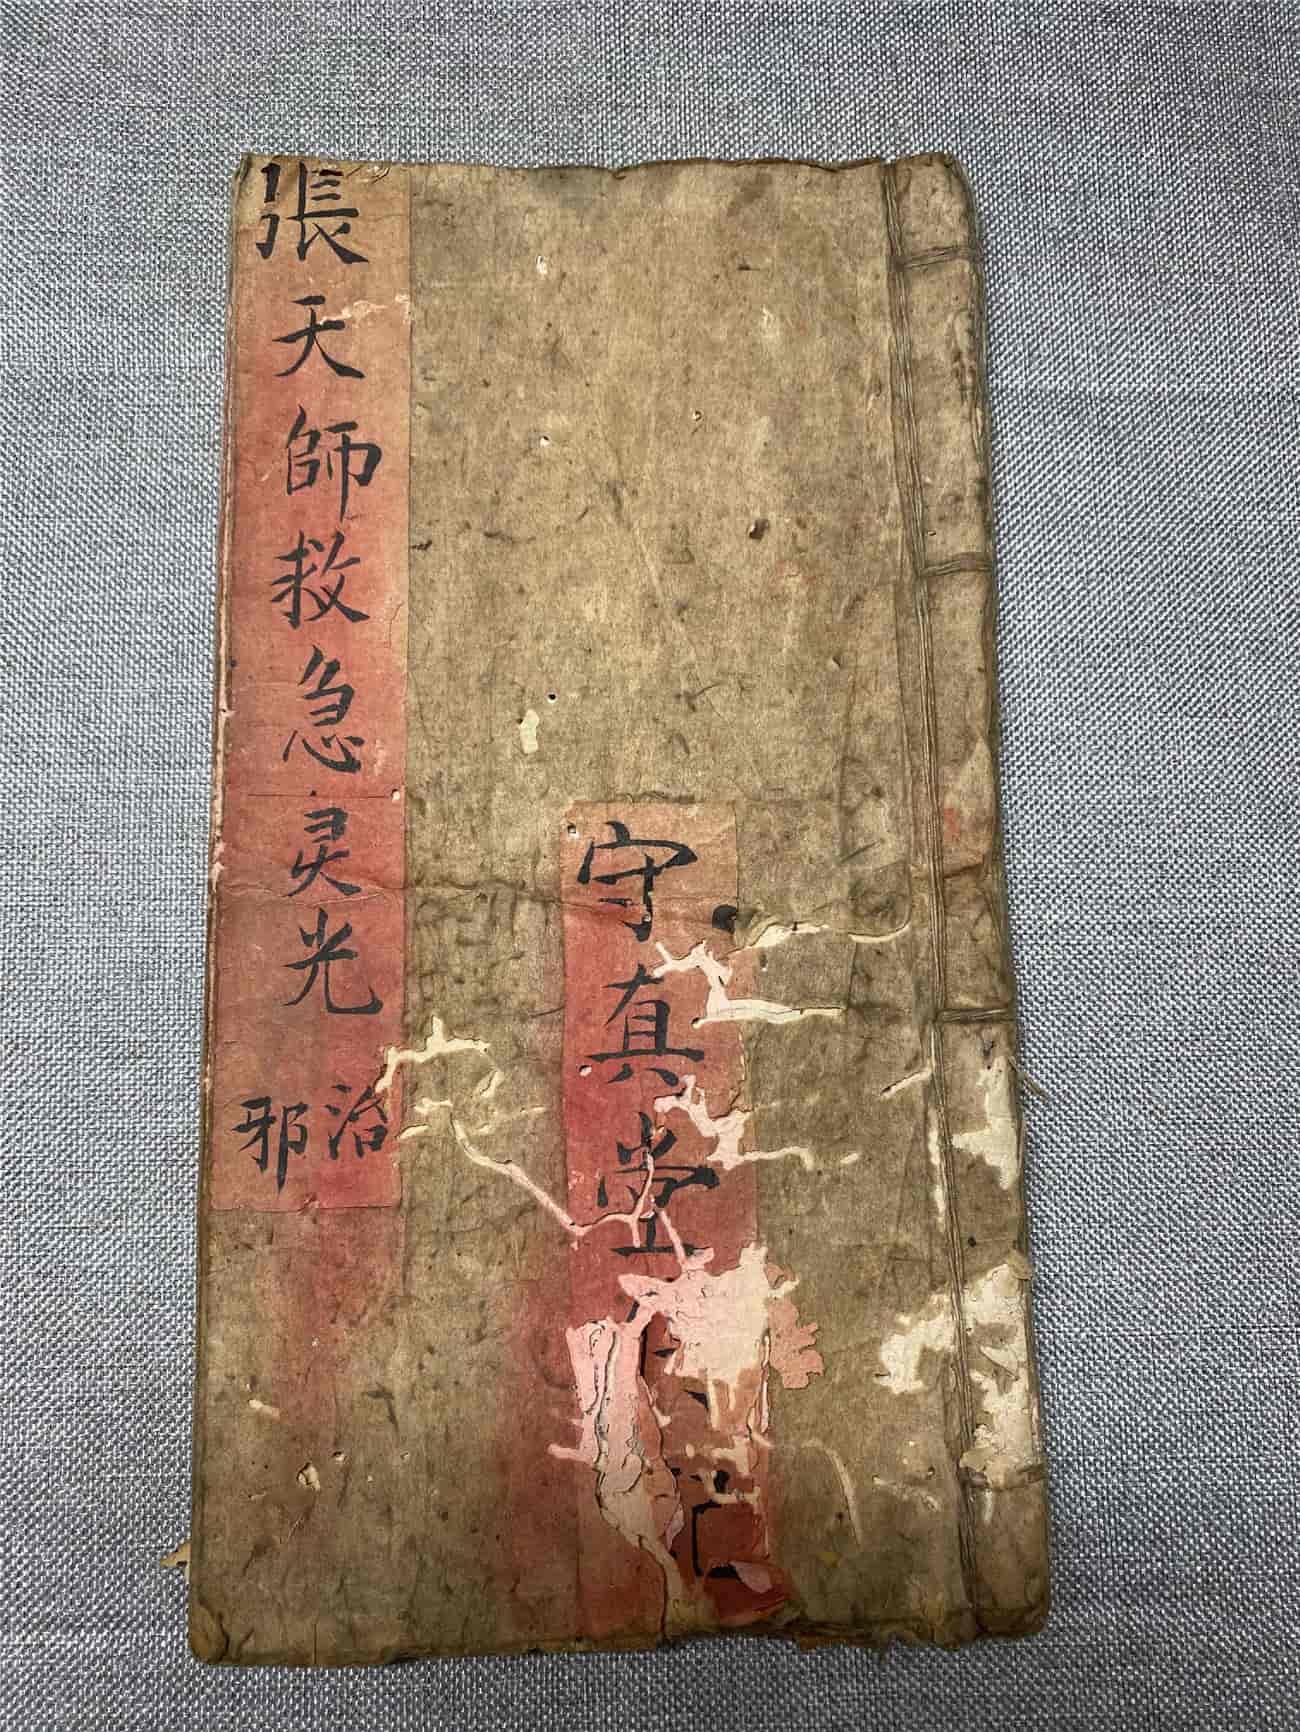 張天師救急灵光
治邪
守真堂
記